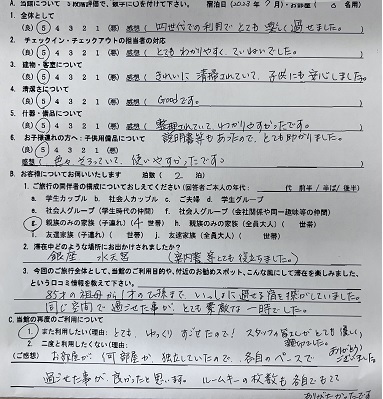 A. 当館について 5段階評価で、数字に○を付けて下さい。 宿泊日(2023年7月・お部屋 名用)
1. 全体として
(良) 5 4 3 2 1 (悪) 感想( 四世代での利用でとても楽しく過せました。 )
2. チェックイン・チェックアウトの担当者の対応
(良) 5 4 3 2 1 (悪) 感想( とてもわかりやすく、ていねいでした。 )
3. 建物・客室について
(良) 5 4 3 2 1 (悪) 感想( きれいに清掃されていて、子供にも安心しました。 )
4. 清潔さについて
(良) 5 4 3 2 1 (悪) 感想( Goodです。 )
5. 什器・備品について
(良) 5 4 3 2 1 (悪) 感想( 整理されていて、わかりやすかったです。 )
6. お子様連れの方へ:子供用備品について 説明書等もあったので、とても助かりました。
(良) 5 4 3 2 1 (悪)
感想( 色々そろっていて、使いやすかったです。 )
B. お客様についてお伺いいたします 泊数( 2 )泊
1. ご旅行の同伴者の構成においておしえてください (回答者ご本人の年代: 代 前半/半ば/後半)
a. 学生カップル b. 社会人カップル c. ご夫婦 d. 学生グループ
e. 社会人グループ(学生時代の仲間) f. 社会人グループ(会社関係や同一趣味等の仲間)
g. 親族のみの家族(子連れ)( 4 世帯) h. 親族のみの家族(全員大人)( 世帯)
i. 友達家族(子連れ)( 世帯) j. 友達家族(全員大人)( 世帯)
2. 滞在中どのような場所にお出かけされましたか?
( 銀座 水天宮 (案内書等とても役立ちました。) )
3. 今回のご旅行全体として、当館のご利用目的や、付近のお勧めスポット、こんな風にして滞在を楽しみました、
という口コミ情報を教えて下さい。
85才の祖母から1才のひ孫まで、いっしょに過せる宿を探がしていました。
同じ空間で過ごせた事が、とても素敵な一時でした。
C. 当館の再度のご利用について
1. また利用したい(理由: とても、ゆっくりすごせたので! スタッフの皆さんがとても優しく、親切でした。
2. 二度と利用したくない(理由: ありがとうございました。
(ご感想) お部屋が何部屋か、独立していたので、各自のペースで
過ごせた事が、良かったと思います。ルームキーの枚数も各自でもてて
ありがたかったです